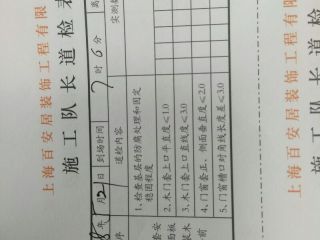 上海百安居装饰工程有限
施工队长道检表
8年5月21日 到场时间 7时6分 离
序 送检内容 实测
1、检查基层的防腐处理和固定
稳固程度
2、木门套上口平直度≤1.0
3、木门套上口直线度≤3.0
4、门窗套正、侧面垂直度≤2.0
5、门窗槽口对角线长度差≤3.0
套安
面板
装木
前
上海百安居装饰工程有限
施工队长道检